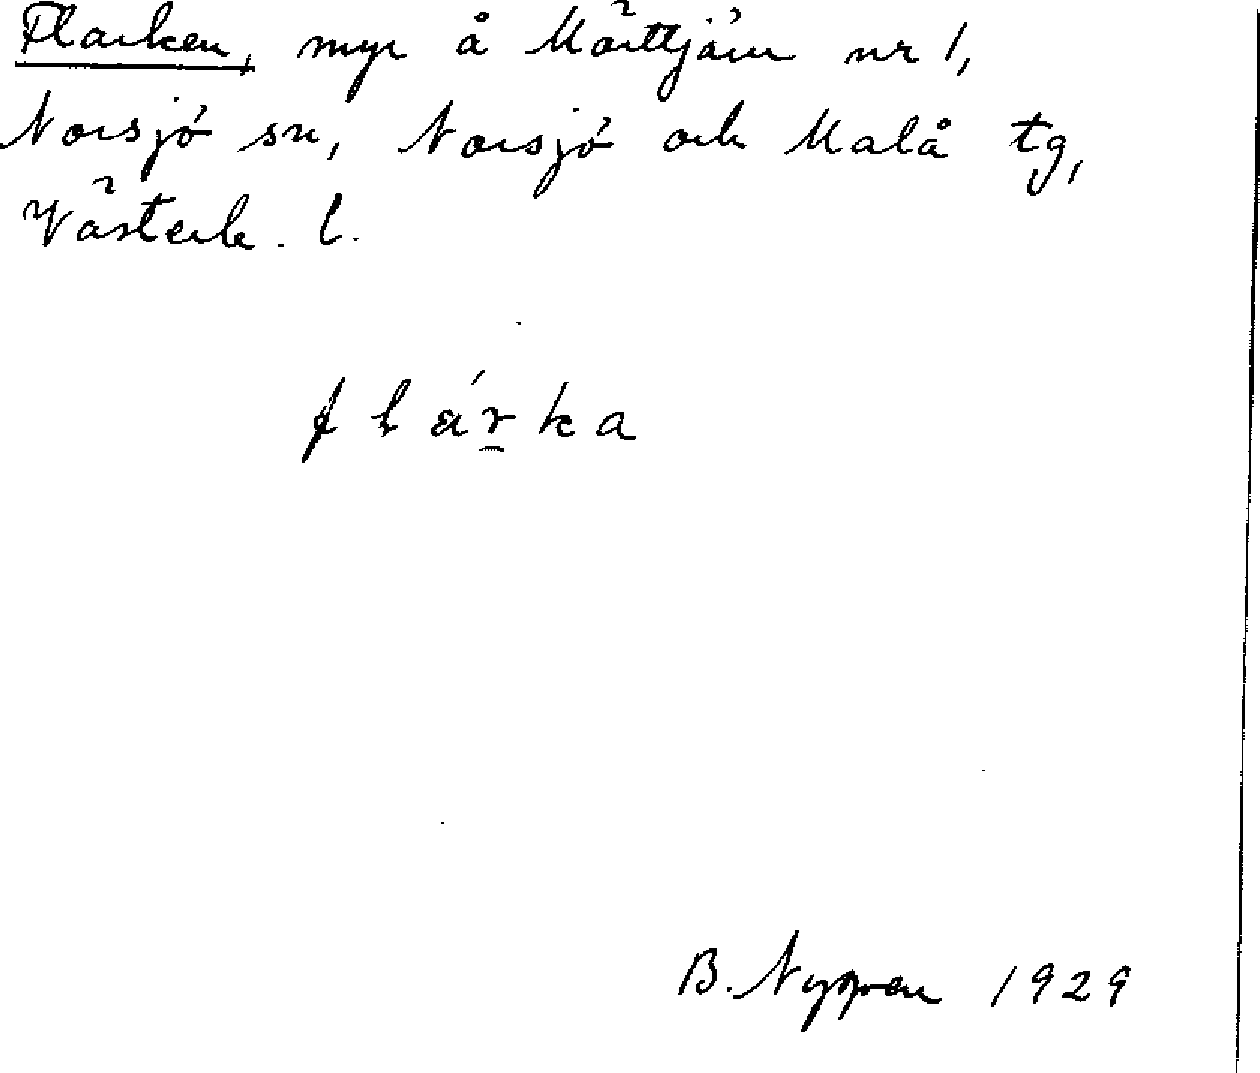 Flarken, myr å Mörttjärn nr 1,
Norsjö sn, Norsjö och Malå tg,
Västerb. l.
flárka
B. Nygren 1929